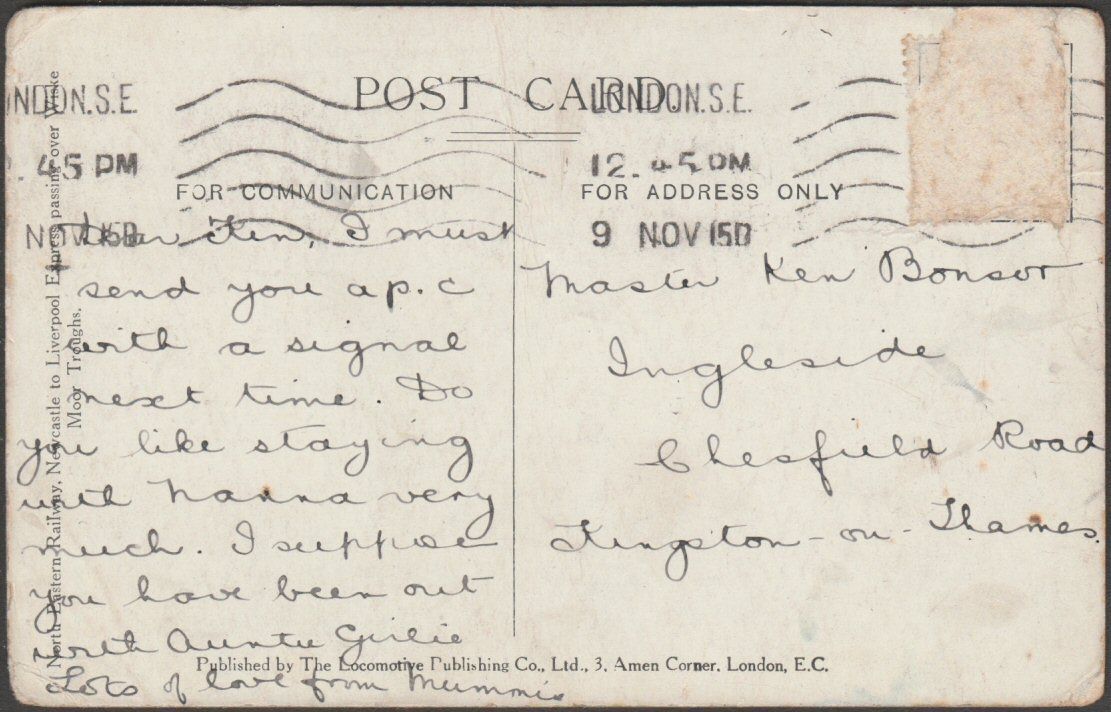 POST CARD.
LONDON.S.E.
45 PM
LONDON.S.E.
12.45 PM
9 NOV 15D
FOR COMMUNICATION
FOR ADDRESS ONLY
Dear Ken, I must
send you a p.c
with a signal
next time. Do
you like staying
with Nanna very
much. I suppose
You have been out
with Auntie Girlie
Lots of love from Mummie
Master Ken Bonsor
Ingleside
Chesfield Road
Kingston-on-Thames.
North Eastern Railway, Newcastle to Liverpool Express passing over Wiske
Moor Troughs.
Published by The Locomotive Publishing Co., Ltd., 3, Amen Corner, London, E.C.